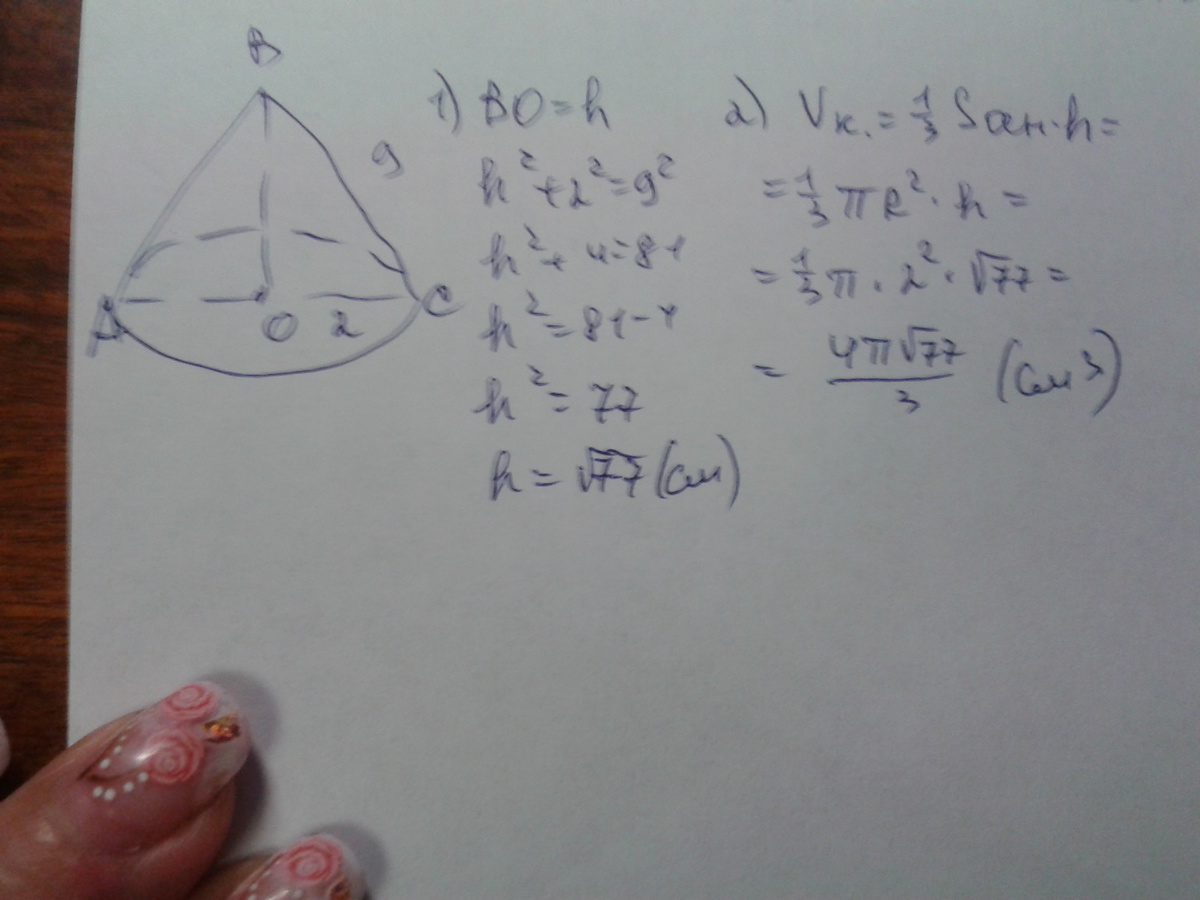 B
9
A
O
2
C
1) BO = h
h² + 2² = 9²
h² + 4 = 81
h² = 81 - 4
h² = 77
h = √77 (см)
2) Vк. = 1/3 Sосн·h =
= 1/3 πR² · h =
= 1/3 π · 2² · √77 =
= 4π√77/3 (см³)